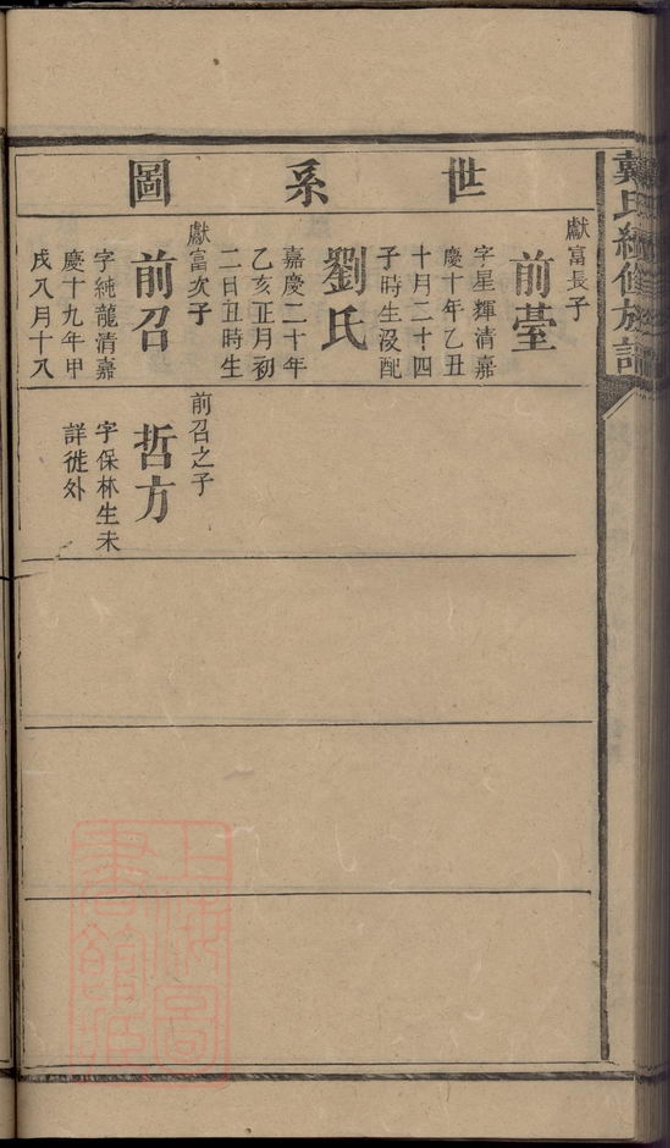 戴氏續修族譜
世系圖
獻富長子
前臺
字星輝清嘉
慶十年乙丑
十月二十四
子時生没配
劉氏
嘉慶二十年
乙亥正月初
二日丑時生
獻富次子
前召
字純龍清嘉
慶十九年甲
戌八月十八
前召之子
哲方
字保林生未
詳徙外
上海圖
書館藏